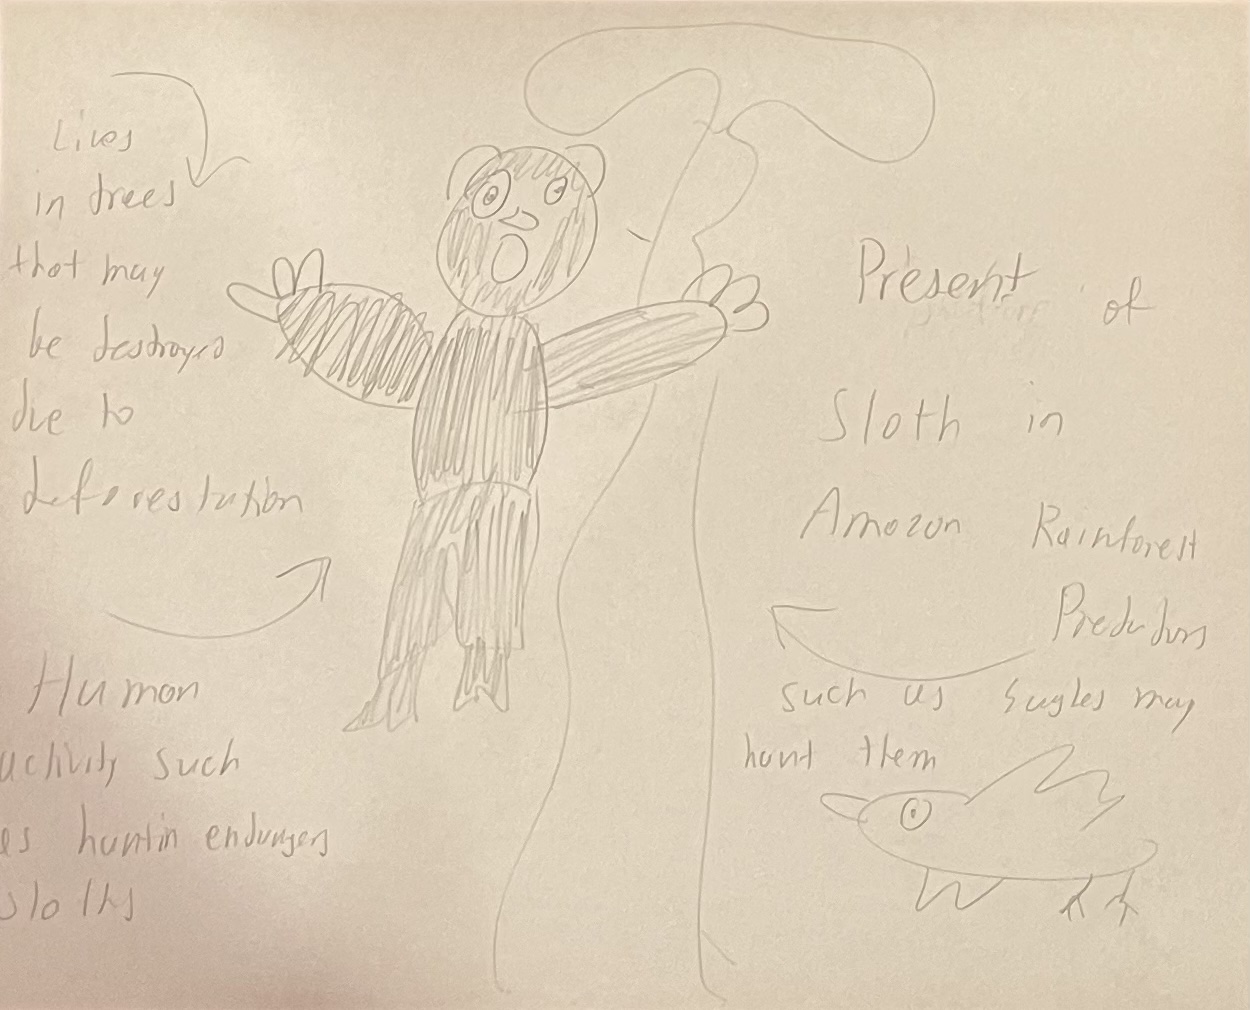 Lives
in trees
that may
be destroyed
due to
deforestation
Human
activity such
as huntin endangers
sloths
Present of
Sloth in
Amazon Rainforest
Predators
such as Eagles may
hunt them